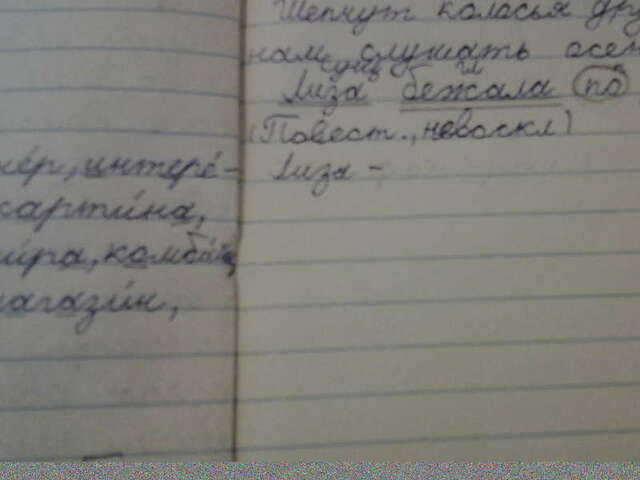 нер, интере-
картина,
ира, комба
магазин,
Шепчут колосья дру
нам слушать осен
сущ
гл
Лиза бежала по
(Повест., невоскл)
Лиза -